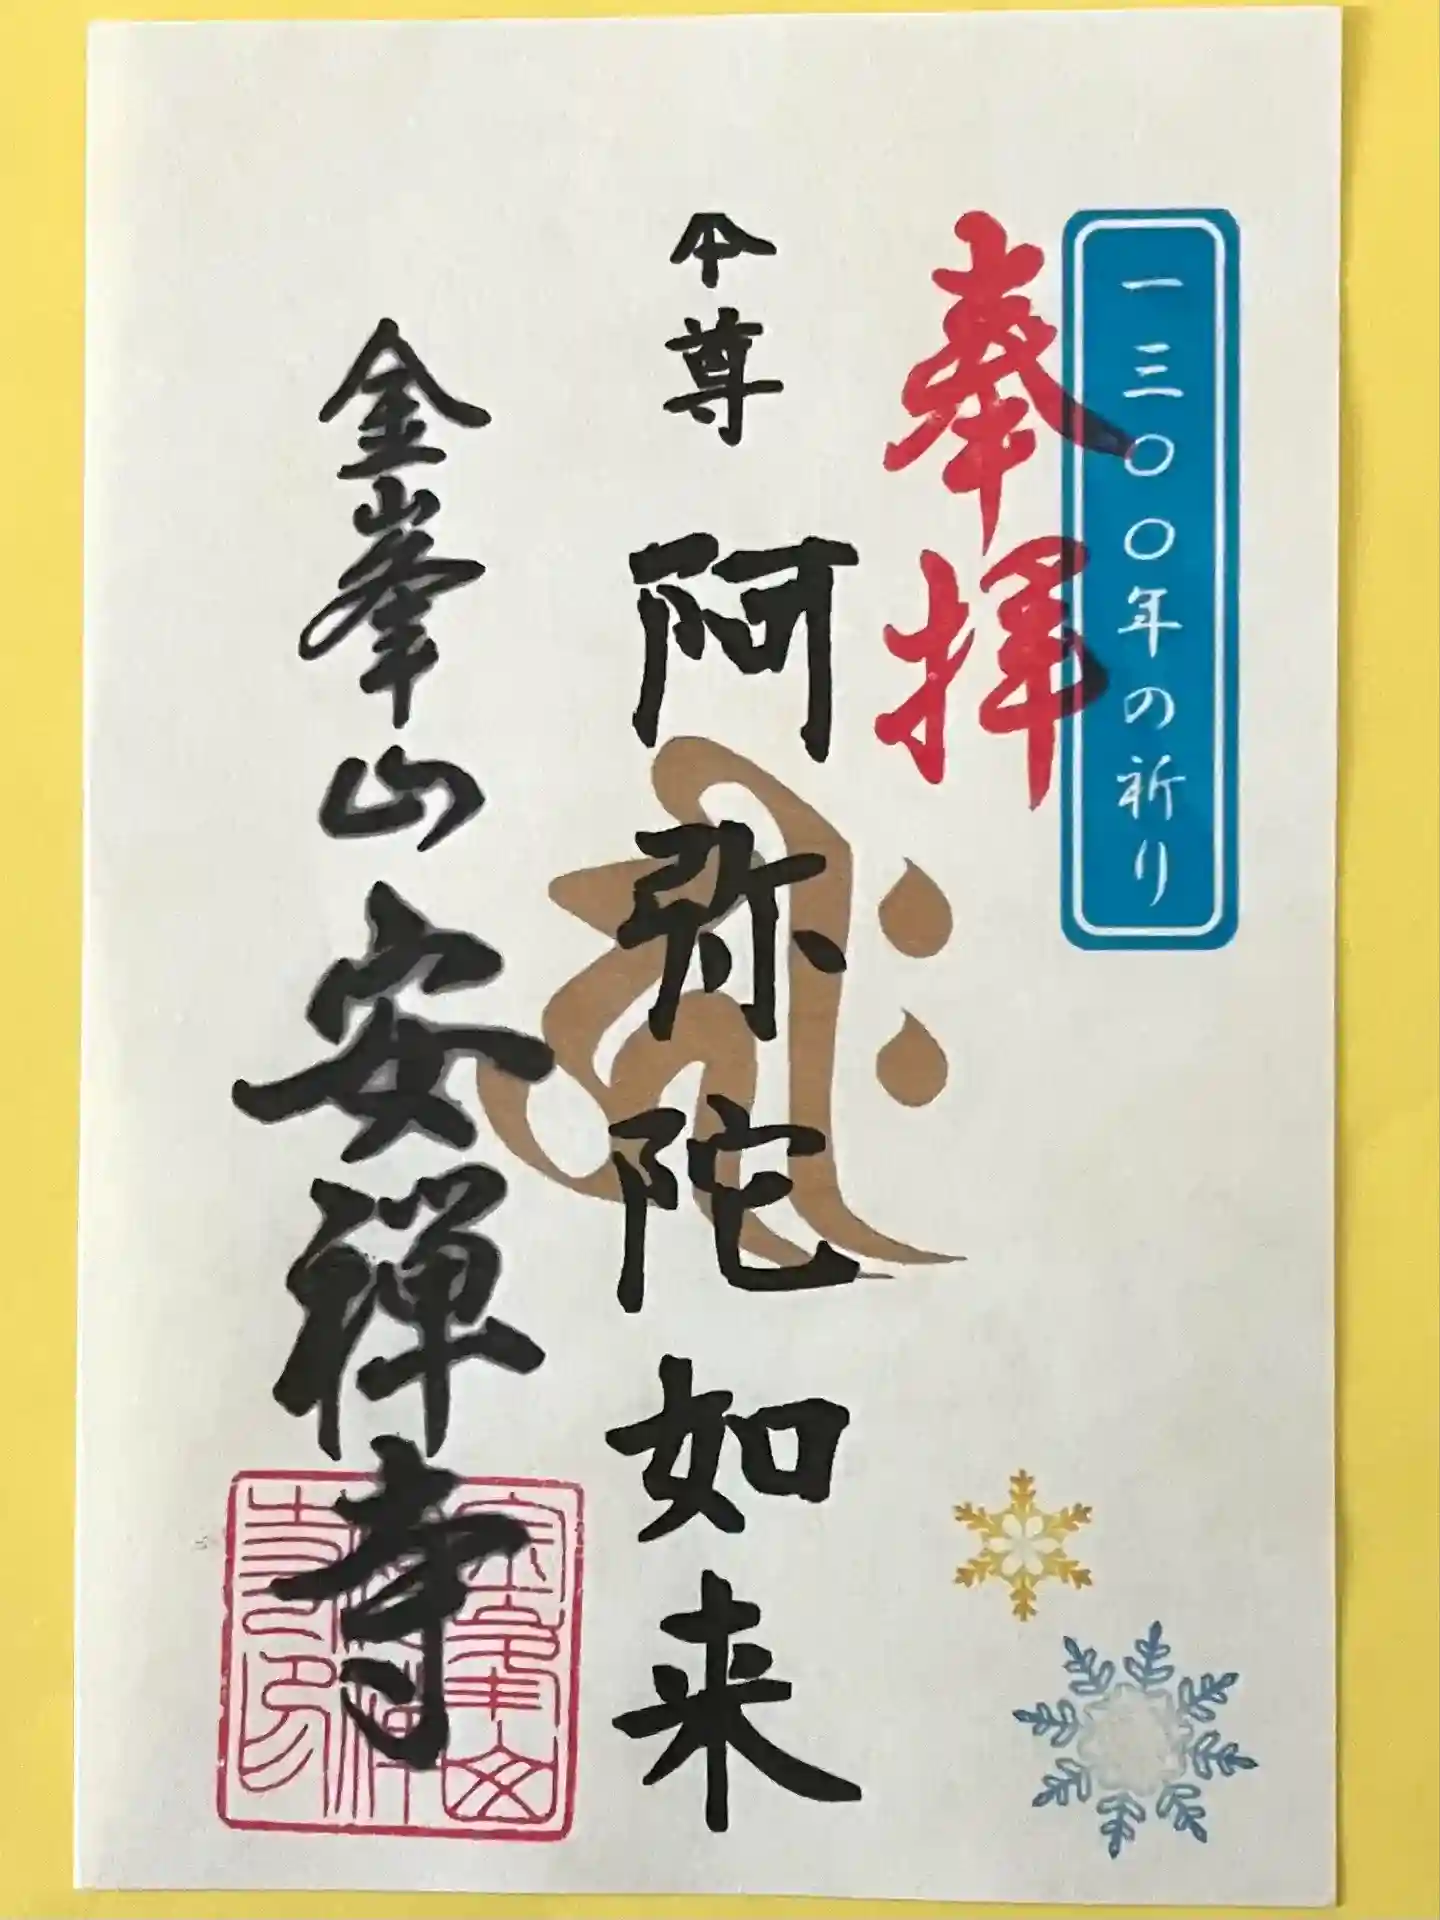 一三〇〇年の祈り
奉拝
本尊 阿弥陀如来
金峯山 安禅寺